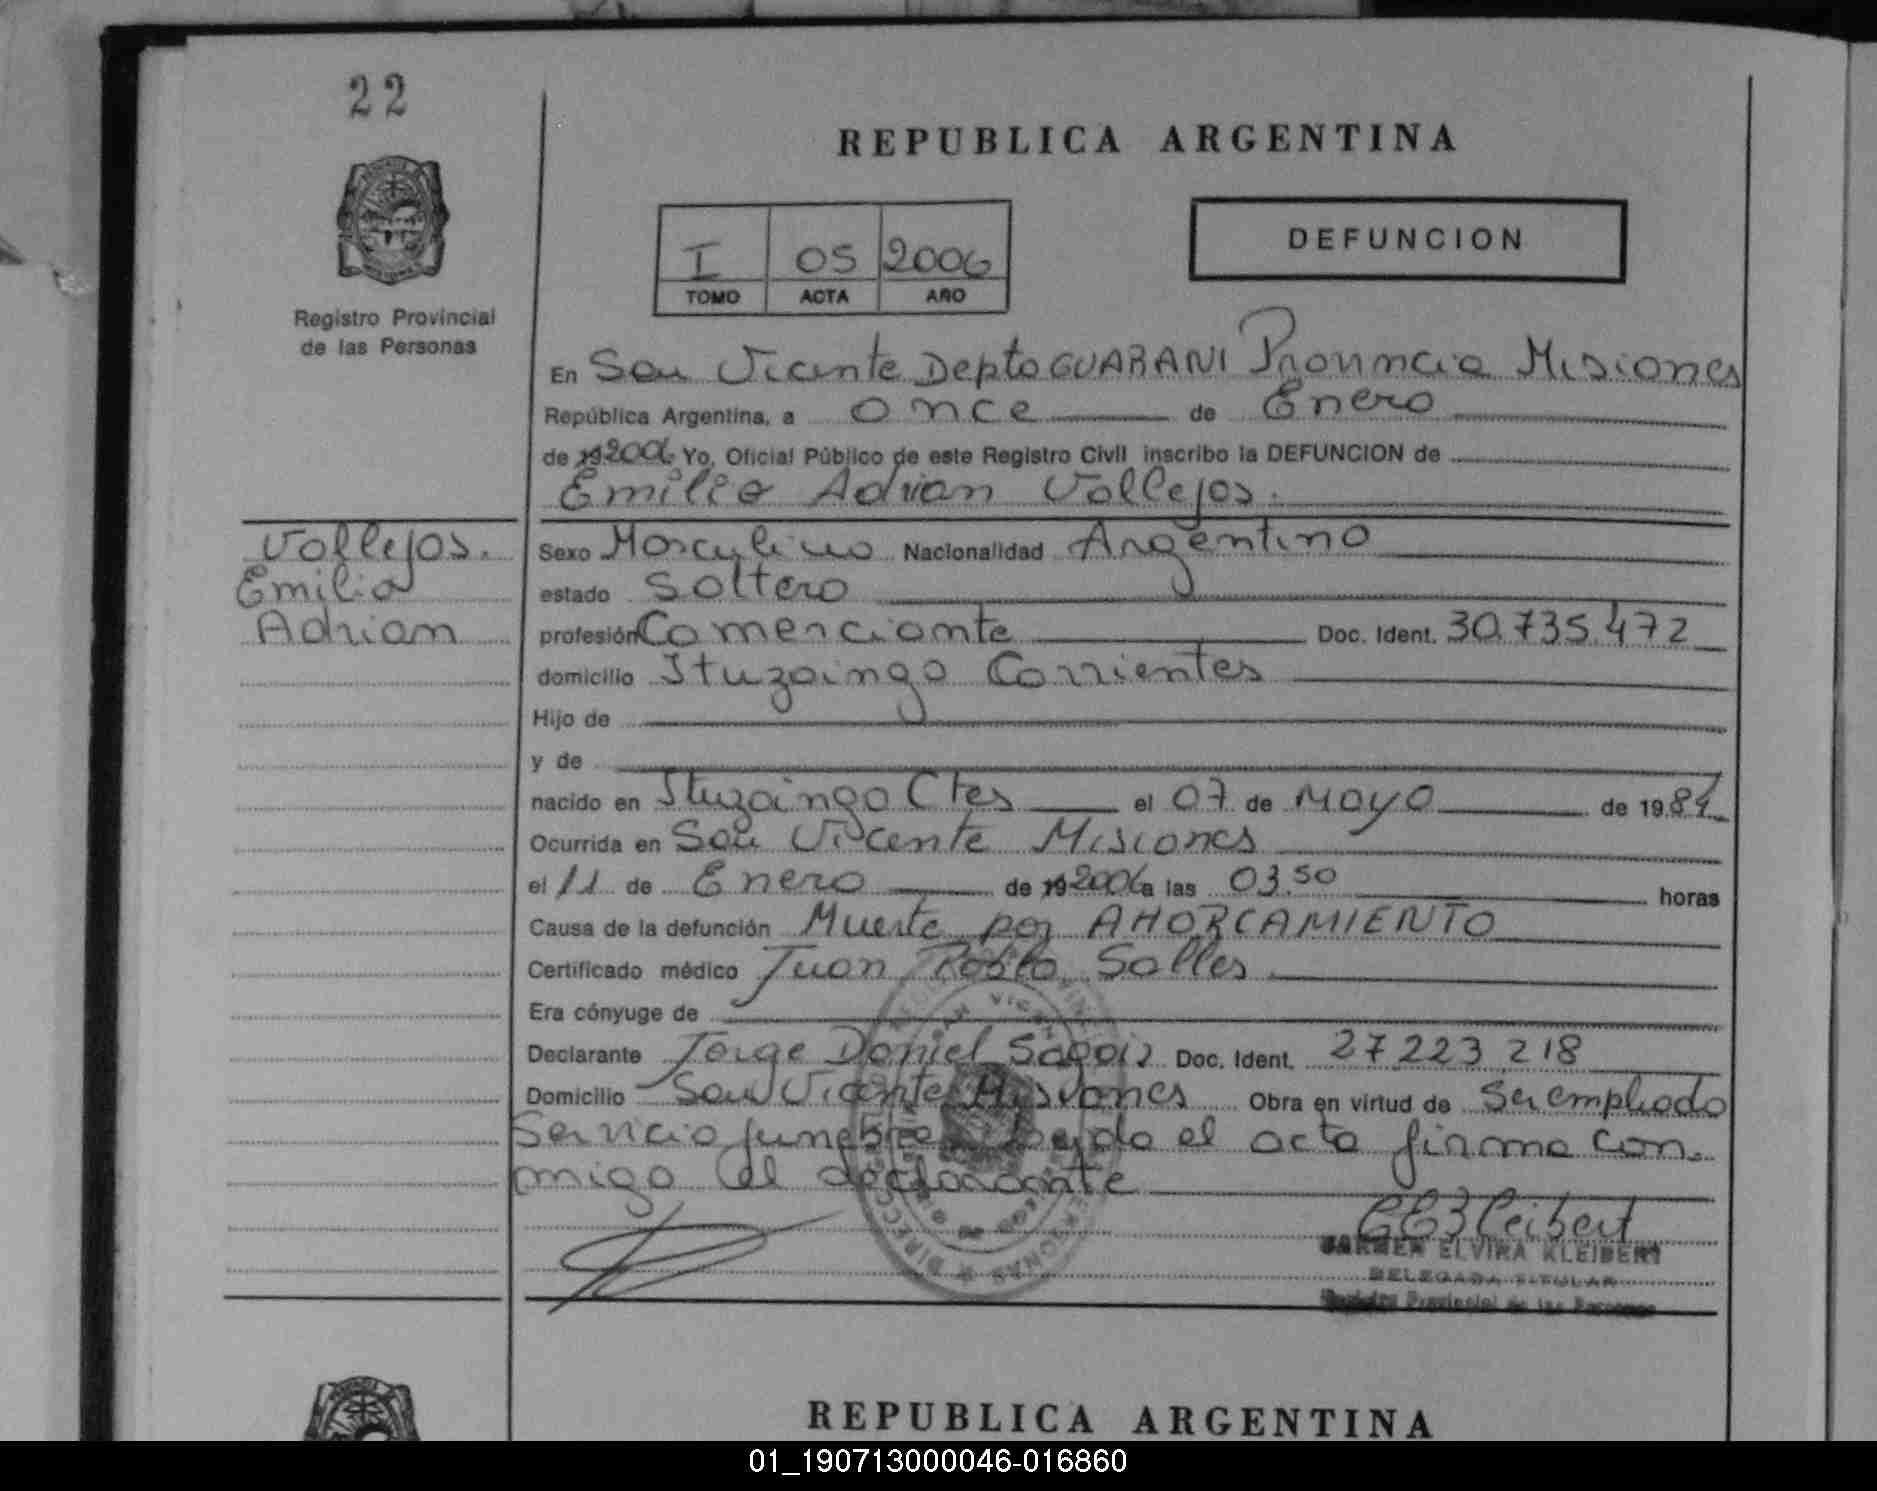 22
REPUBLICA ARGENTINA
I 05 2006
TOMO ACTA AÑO
DEFUNCION
Registro Provincial
de las Personas
En San Vicente Depto GUARANI Provincia Misiones
República Argentina, a once de Enero
de 192006 Yo, Oficial Público de este Registro Civil inscribo la DEFUNCION de
Emilio Adrian Vallejos.
Vallejos.
Emilio
Adrian
Sexo Masculino Nacionalidad Argentino
estado Soltero
profesión Comerciante Doc. Ident. 30.735.472
domicilio Ituzaingo Corrientes
Hijo de
y de
nacido en Ituzaingo Ctes el 07 de Mayo de 1984
Ocurrida en San Vicente Misiones
el 11 de Enero de 192006 a las 03.50 horas
Causa de la defunción Muerte por AHORCAMIENTO
Certificado médico Juan Pablo Salles
Era cónyuge de
Declarante Jorge Daniel Doc. Ident. 27 223 218
Domicilio San Vicente Misiones Obra en virtud de Ser empleado
Servicio funebre leida el acta firma con.
migo el declarante
CARMEN ELVIRA KLEIBERT
DELEGADA TITULAR
Registro Provincial de las Personas
REPUBLICA ARGENTINA
01_190713000046-016860